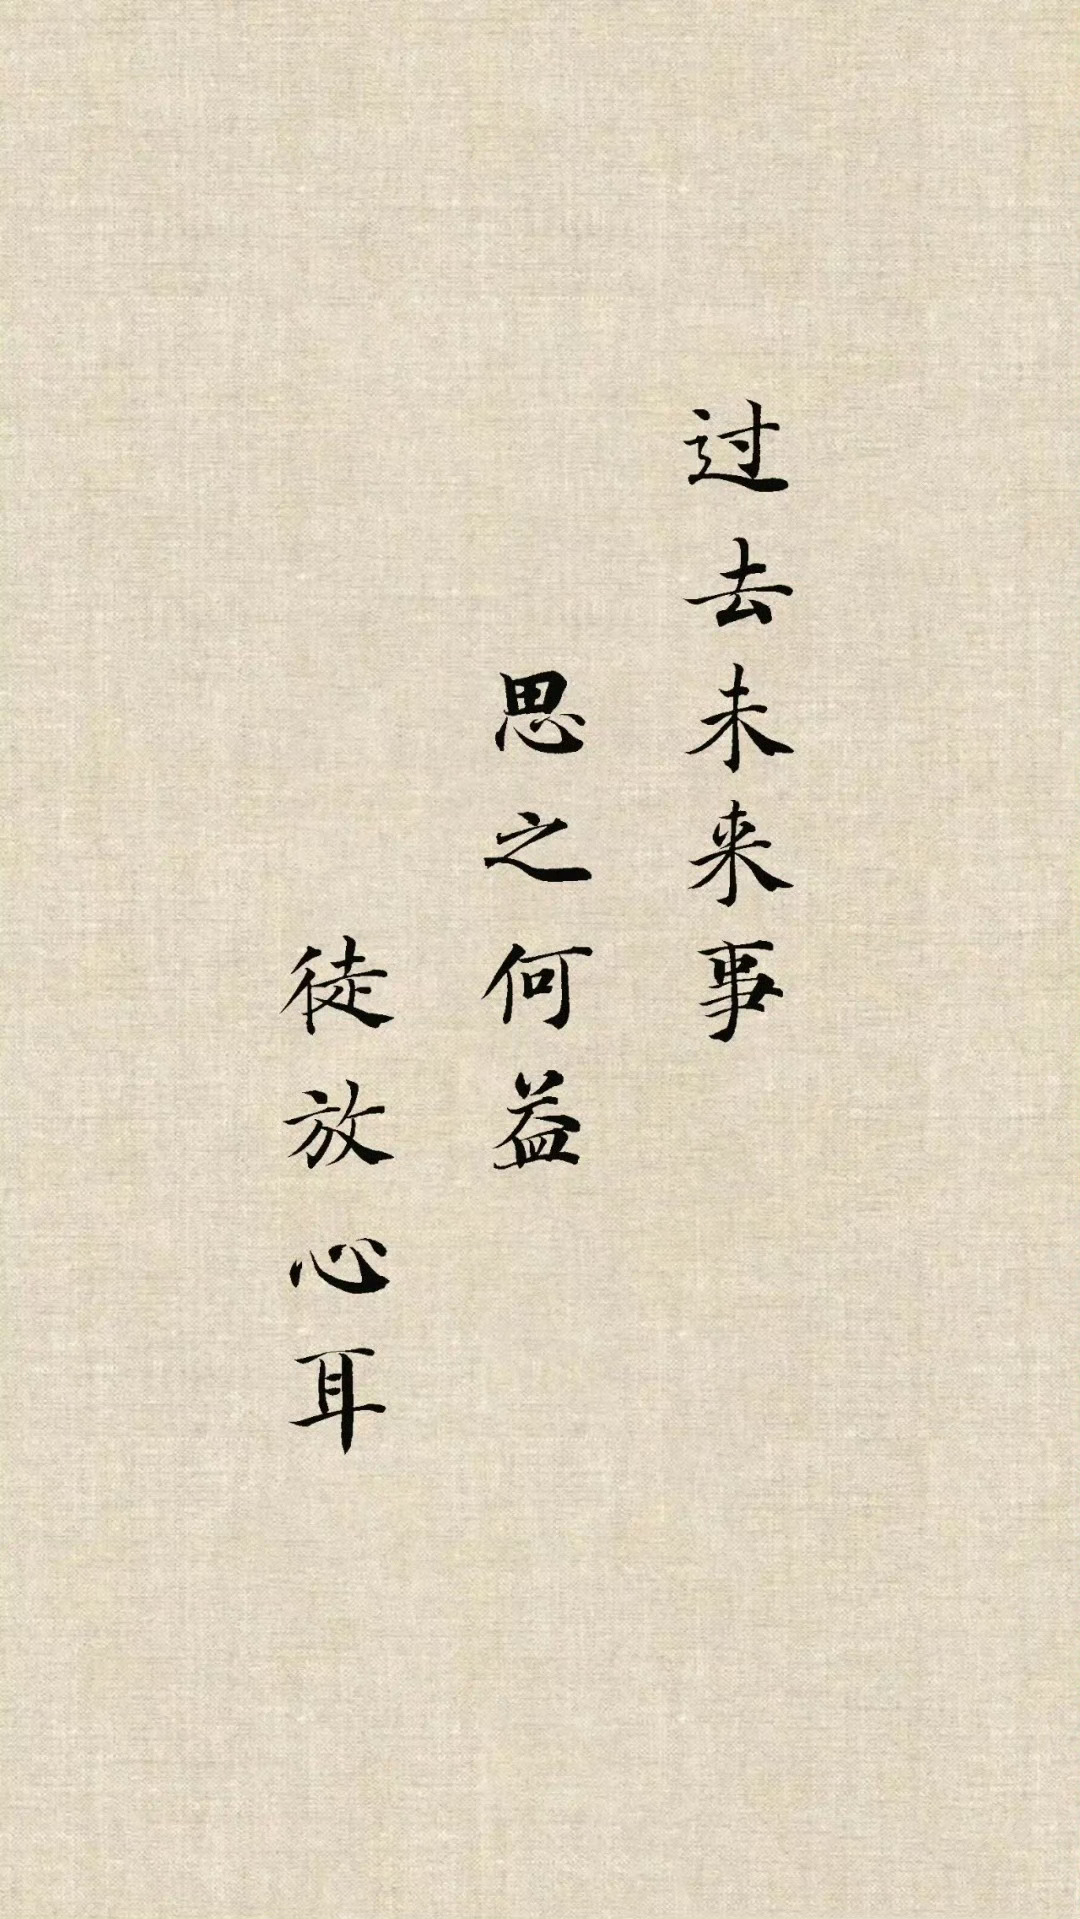 过去未来事
思之何益
徒放心耳